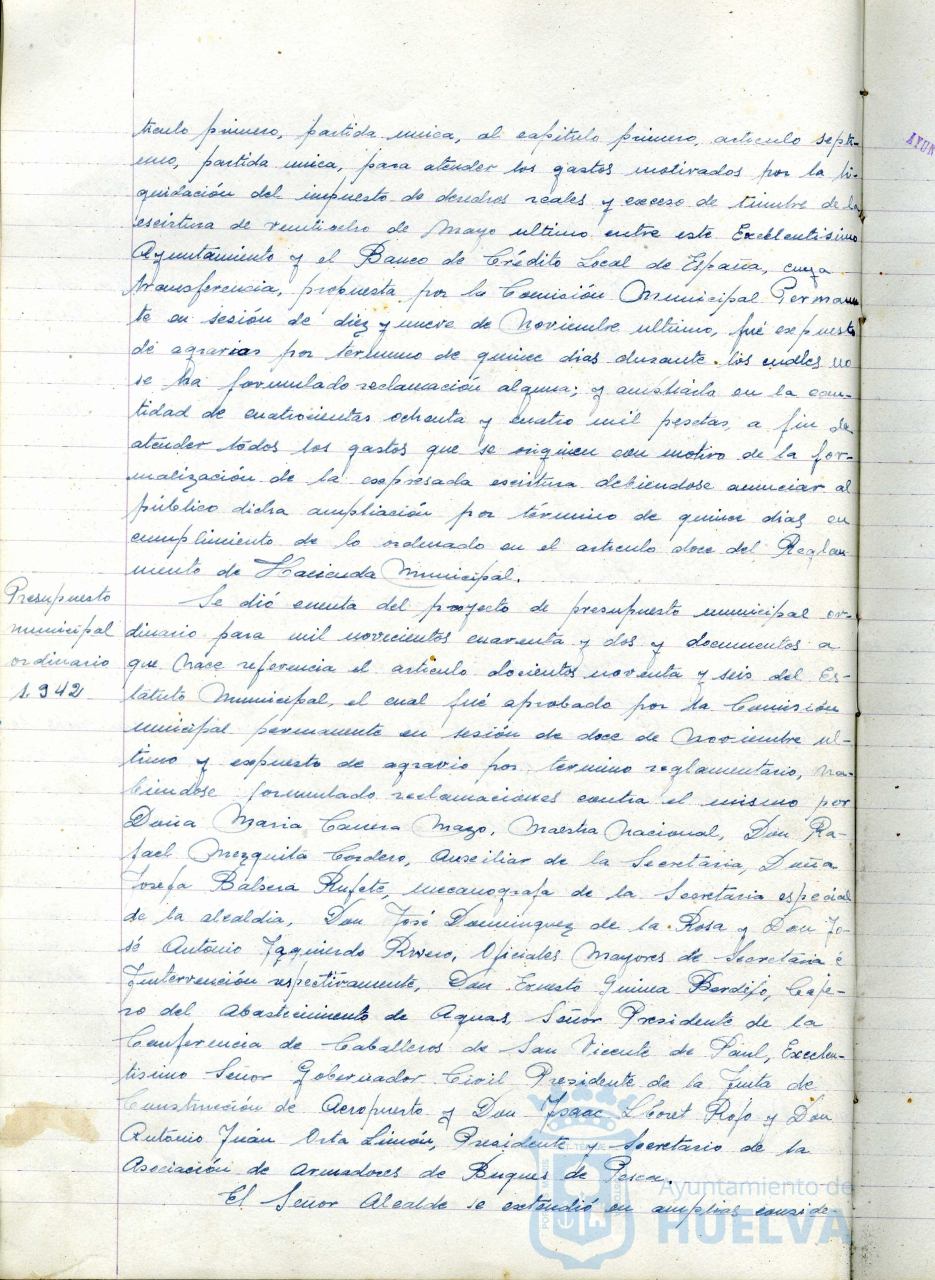 ticulo primero, partida unica, al capitulo primero, articulo septi-
mo, partida unica, para atender los gastos motivados por la li-
quidación del impuesto de derechos reales y exceso de timbre de la
escritura de veintiocho de Mayo ultimo entre este Excelentisimo
Ayuntamiento y el Banco de Crédito Local de España, cuya
transferencia, propuesta por la Comisión Municipal Permanen
te en sesión de diez y nueve de Noviembre ultimo, fué expuesto
de agravias por término de quince dias durante los cuales no
se ha formulado reclamación alguna; y ampliarla en la can-
tidad de cuatrocientas ochenta y cuatro mil pesetas, a fin de
atender todos los gastos que se originen con motivo de la for-
malización de la expresada escritura debiendose anunciar al
público dicha ampliación por término de quince dias en
cumplimiento de lo ordenado en el articulo doce del Regla-
mento de Hacienda Municipal.
Presupuesto
municipal
ordinario
1.942
Se dió cuenta del proyecto de presupuesto municipal or-
dinario para mil novecientos cuarenta y dos y documentos a
que hace referencia el articulo docientos noventa y seis del Es-
tatuto Municipal, el cual fué aprobado por la Comisión
municipal permanente en sesión de doce de Noviembre ul-
timo y expuesto de agravio por termino reglamentario, ha-
biendose formulado reclamaciones contra el mismo por
Doña Maria Mazo, Maestra Nacional, Don Ra-
fael Mezquita Cordero, Auxiliar de la Secretaria, Doña
Josefa Balsera Rufete, mecanografa de la Secretaria especial
de la alcaldia, Don José Dominguez de la Rosa y Don Jo-
sé António Izquierdo Rivero, Oficiales Mayores de Secretaria é
Intervención respectivamente, Don Ernesto Caje-
ro del Abastecimiento de Aguas, Señor Presidente de la
Conferencia de Caballeros de San Vicente de Paul, Excelen-
tisimo Señor Gobernador Civil Presidente de la Junta de
Construcción de Aeropuerto y Don Isaac Lloret Rojo y Don
António Juán Orta Limón, Presidente y Secretario de la
Asociación de Armadores de Buques de Pesca.
El Señor Alcalde se extendió en amplias conside-
AYUN
Ayuntamiento de
HUELVA